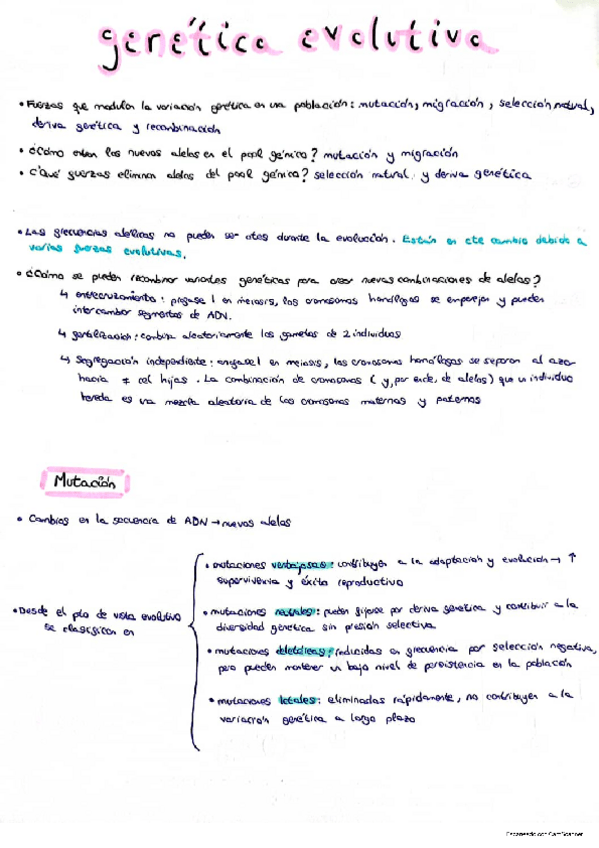 genética evolutiva
• Fuerzas que modulan la variación genética en una población: mutación, migración, selección natural,
deriva genética y recombinación
• ¿Cómo entran los nuevos alelos en el pool génico? mutación y migración
• ¿Qué fuerzas eliminan alelos del pool génico? selección natural y deriva genética
• Las frecuencias alélicas no pueden ser ctes durante la evolución. Están en cte cambio debido a
varias fuerzas evolutivas.
• ¿Cómo se pueden recombinar variantes genéticas para crear nuevas combinaciones de alelos?
↳ entrecruzamiento: profase I en meiosis, los cromosomas homólogos se emparejan y pueden
intercambiar segmentos de ADN.
↳ fertilización: combina aleatoriamente los gametos de 2 individuos
↳ segregación independiente: anafase I en meiosis, los cromosomas homólogos se separan al azar
hacia ≠ cél hijas. La combinación de cromosomas (y, por ende, de alelos) que un individuo
hereda es una mezcla aleatoria de los cromosomas maternos y paternos
Mutación
• Cambios en la secuencia de ADN → nuevos alelos
• mutaciones ventajosas: contribuyen a la adaptación y evolución → ↑
supervivencia y éxito reproductivo
• Desde el pto de vista evolutivo
se clasifican en
• mutaciones neutrales: pueden fijarse por deriva genética y contribuir a la
diversidad genética sin presión selectiva.
• mutaciones deletéreas: reducidas en frecuencia por selección negativa,
pero pueden mantener un bajo nivel de persistencia en la población
• mutaciones letales: eliminadas rápidamente, no contribuyen a la
variación genética a largo plazo
Escaneado con CamScanner